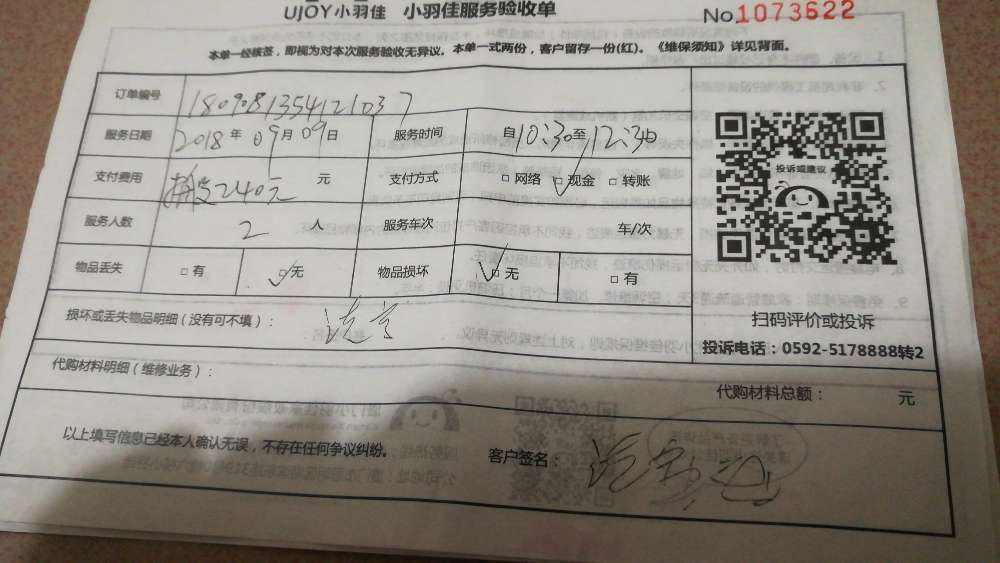 UJOY小羽佳 小羽佳服务验收单 No.1073622
本单一经核签，即视为对本次服务验收无异议。本单一式两份，客户留存一份(红)。《维保须知》详见背面。
订单编号 1809081354121037
服务日期 2018年09月09日 服务时间 自10:30至12:30
支付费用 240元 元 支付方式 □网络 □现金 □转账
服务人数 2 人 服务车次 车/次
物品丢失 □有 □无 物品损坏 □无 □有
投诉或建议
扫码评价或投诉
投诉电话：0592-5178888转2
损坏或丢失物品明细（没有可不填）：
代购材料明细（维修业务）：
代购材料总额： 元
以上填写信息已经本人确认无误，不存在任何争议纠纷。
客户签名：